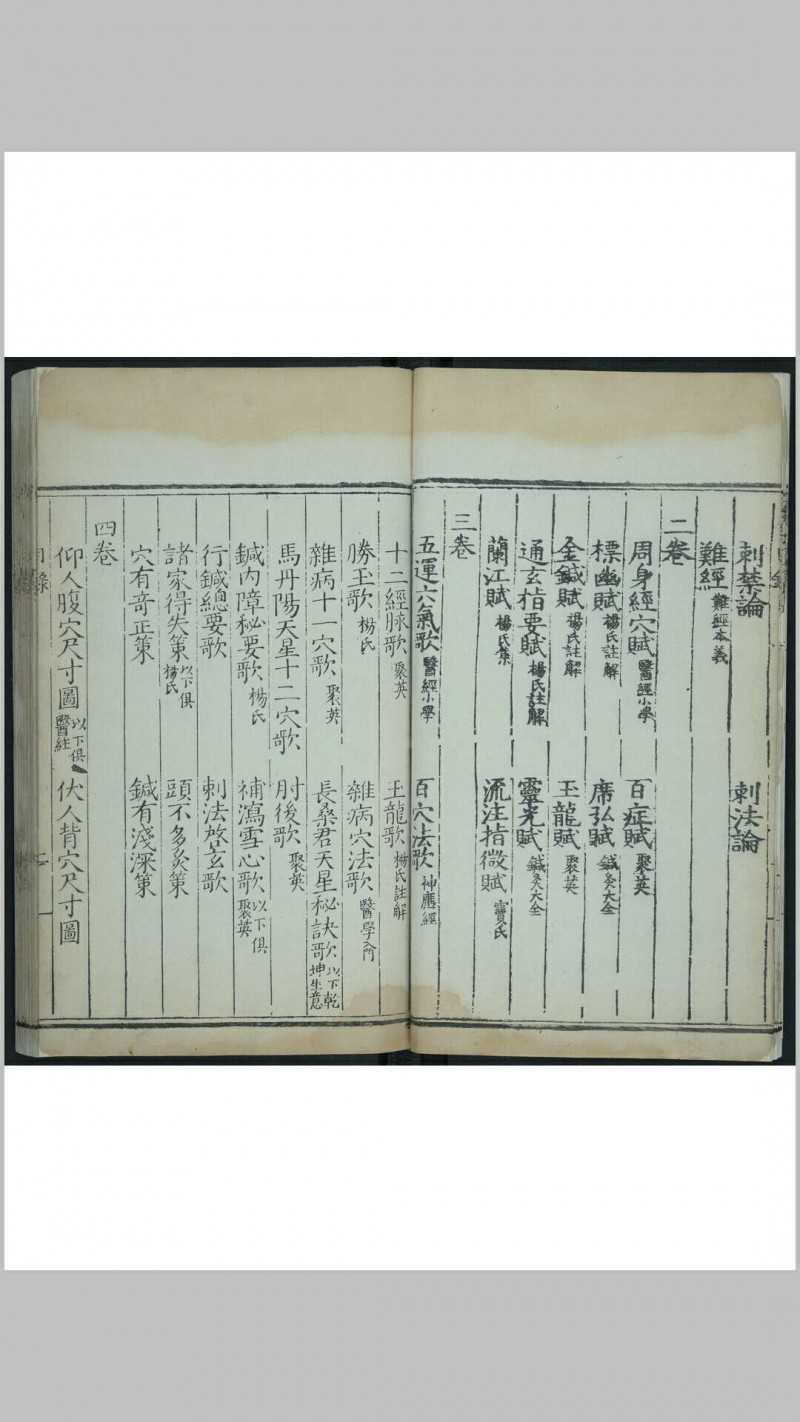 刺禁論 刺法論
難經 難經本義
二卷
周身經穴賦 醫經小學 百症賦 聚英
標幽賦 楊氏註解 席弘賦 鍼灸大全
金鍼賦 楊氏註解 玉龍賦 聚英
通玄指要賦 楊氏註解 靈光賦 鍼灸大全
蘭江賦 楊氏集 流注指微賦 竇氏
三卷
五運六氣歌 醫經小學 百穴法歌 神應經
十二經脉歌 聚英 玉龍歌 楊氏註解
勝玉歌 楊氏 雜病穴法歌 醫學入門
雜病十一穴歌 聚英 長桑君天星秘訣歌 以下乾坤生意
馬丹陽天星十二穴歌 肘後歌 聚英
鍼內障秘要歌 楊氏 補瀉雪心歌 以下俱聚英
行鍼總要歌 刺法啓玄歌
諸家得失策 以下俱楊氏 頭不多灸策
穴有奇正策 鍼有淺深策
四卷
仰人腹穴尺寸圖 以下俱醫統 伏人背穴尺寸圖
目錄